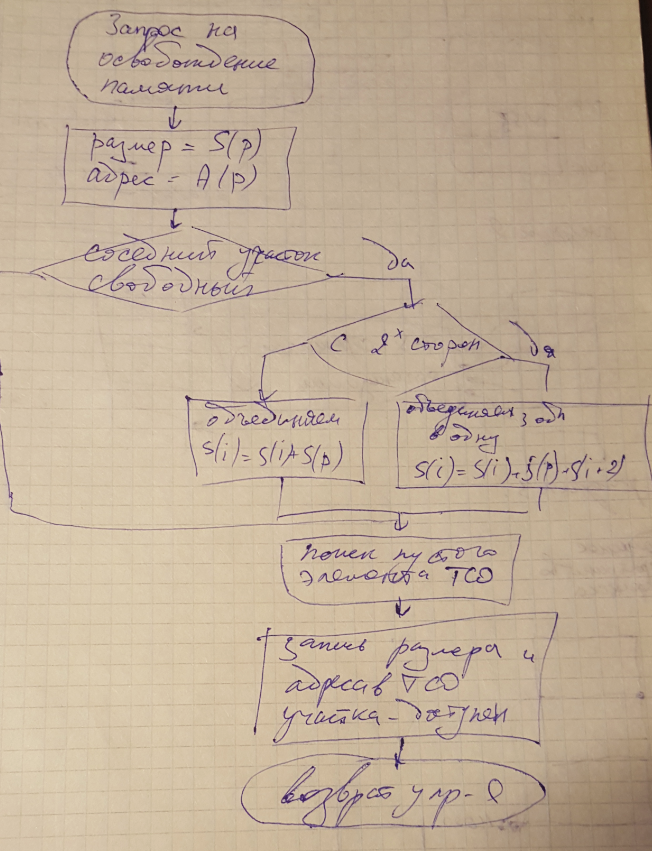 Запрос на
освобождение
памяти
размер = S(p)
адрес = A(p)
соседний участок
свободный
да
с 2х сторон
да
объединяем
S(i)=S(i)+S(p)
объединяем 3 обл
в одну
S(i)=S(i)+S(p)+S(i+2)
поиск пустого
элемента ТСО
запись размера и
адреса в ТСО
участка - доступен
возврат упр-я